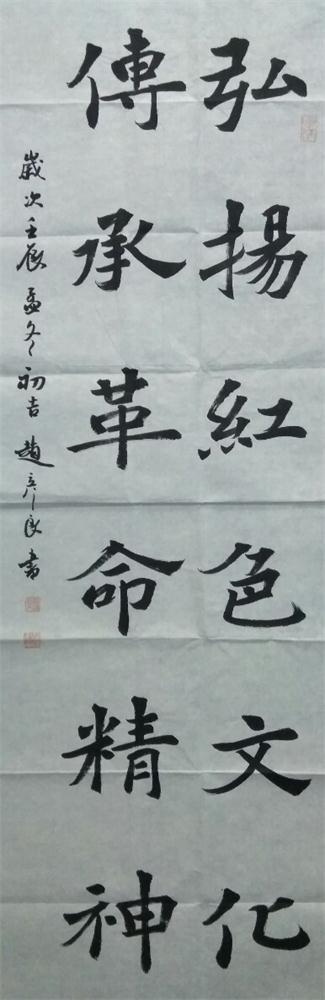 弘揚紅色文化
傳承革命精神
歲次壬辰孟冬初吉趙彥良書